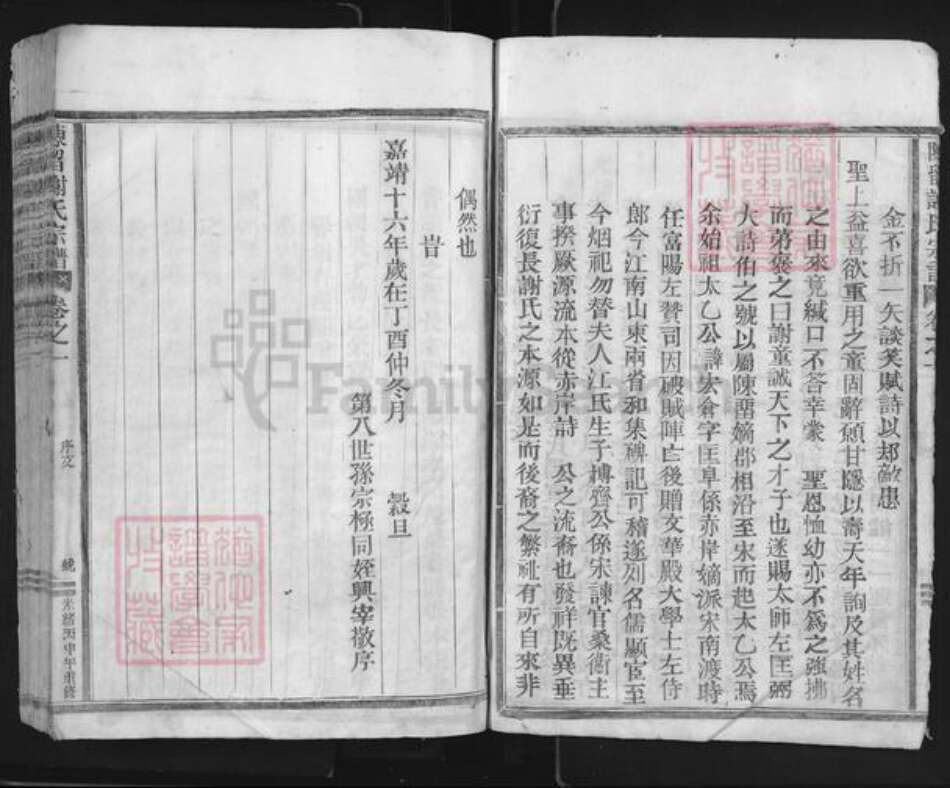 金不折一矢談笑賦詩以却敵患
聖上益喜欲重用之童固辭願甘隱以寄天年詢及其姓名
之由來竟緘口不答幸蒙 聖恩恤幼亦不爲之強拂
而第褒之曰謝童誠天下之才子也遂賜太師左匡弼
大詩伯之號以屬陳畱嫡郡相沿至宋而起太乙公焉
余始祖太乙公諱 倉字 阜係赤岸嫡派宋南渡時
任富陽左贊司因破賊陣亡後贈文華殿大學士左侍
郎今江南山東兩省和集碑記可稽遂列名儒顯宦至
今烟祀勿替夫人江氏生子摶齊公係宋諫官桑衛主
事揆厥源流本從赤岸詩 公之流裔也發祥既異垂
衍復長謝氏之本源如是而後裔之繁祉有所自來非
偶然也
旹
嘉靖十六年歲在丁酉仲冬月 穀旦
第八世孫宗極同姪興宰敬序
陳留謝氏宗譜 卷之一 序文
光緒丙申年重修
FamilySearch